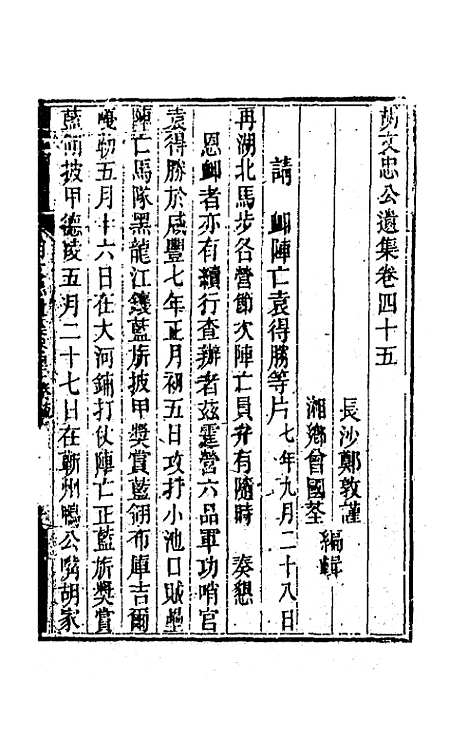 胡文忠公遺集卷四十五
長沙鄭敦謹
湘鄉曾國荃
編輯
請 卹陣亡袁得勝等片七年九月二十八日
再湖北馬步各營節次陣亡員弁有隨時 奏懇
恩卹者亦有續行查辦者茲霆營六品軍功哨官
袁得勝於咸豐七年正月初五日攻打小池口賊壘
陣亡馬隊黑龍江鑲藍旂披甲獎賞藍翎布庫吉爾
嘎勒五月十六日在大河鋪打仗陣亡正藍旂獎賞
藍翎披甲德淩五月二十七日在蘄州鴨公嘴胡家